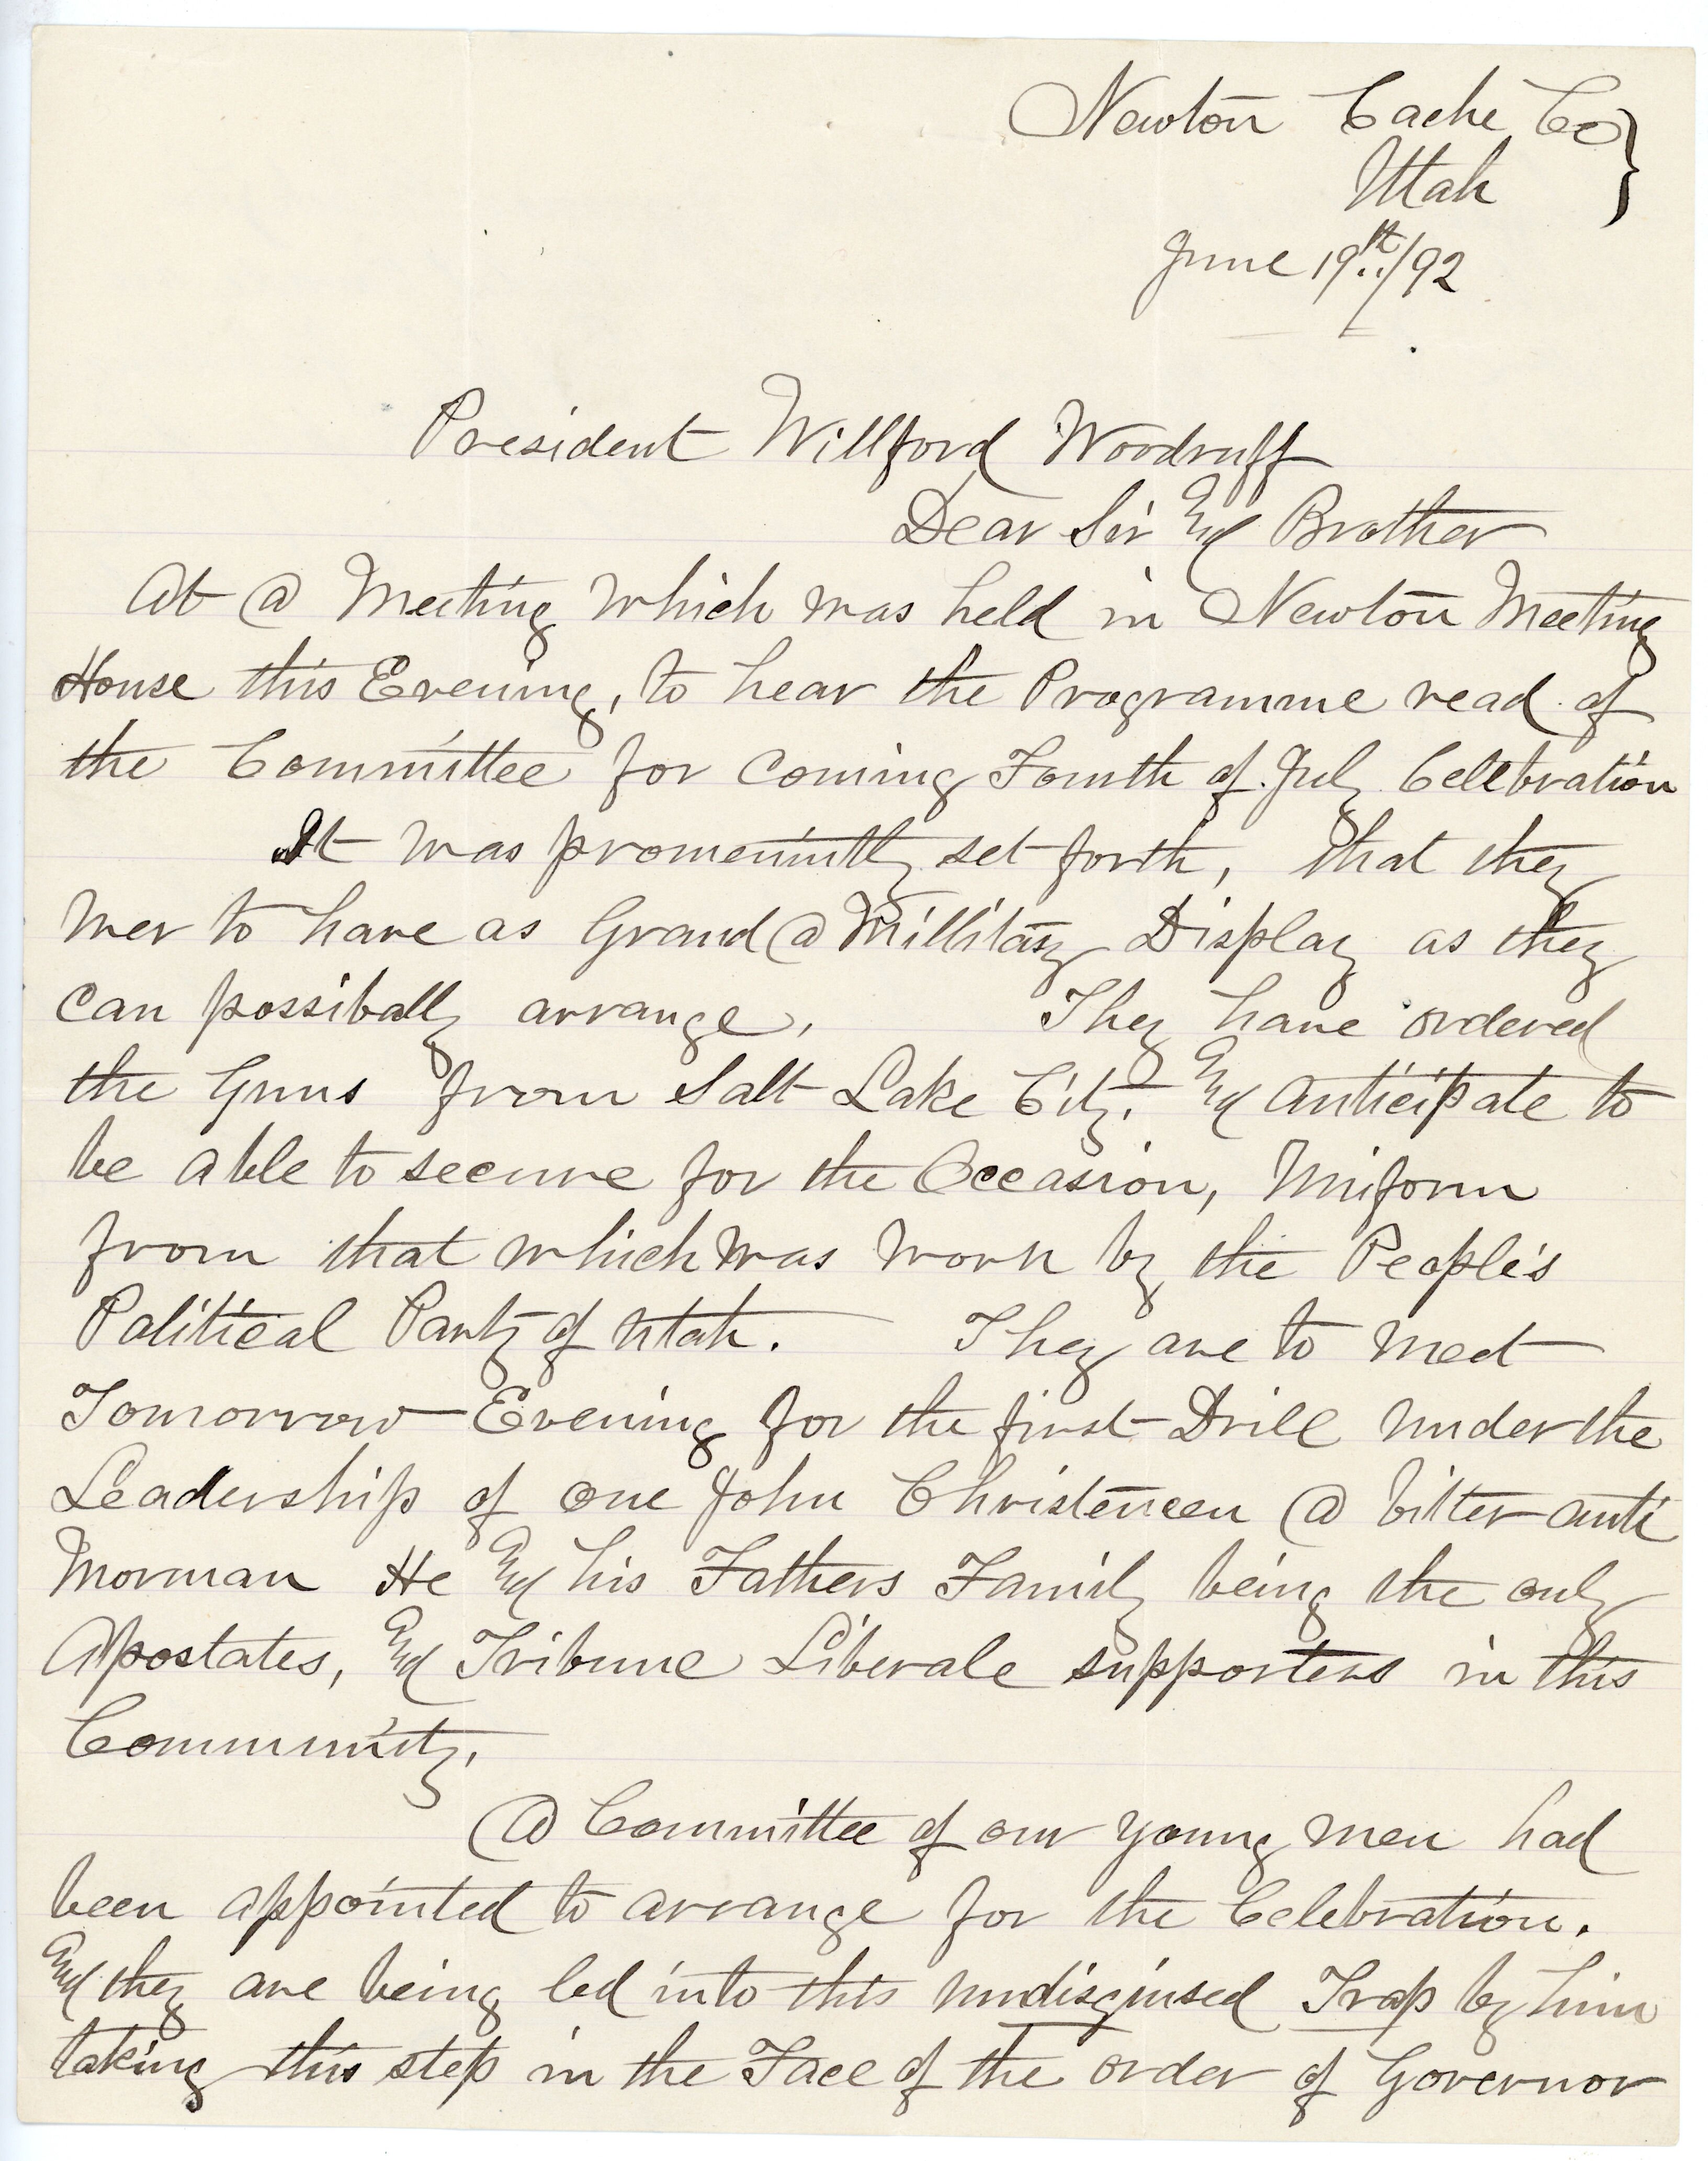 Newton Cache Co }
Utah
June 19th/92
President Willford Woodruff
Dear Sir And Brother
At @ Meeting which was held in Newton Meeting
House this Evening, to hear the Programme read of
the Committee for coming Fourth of July Celebration
It was promenintly set forth, that they
wer to have as Grand @ Millitary Display as they
can possibally arrange. They have ordered
the Guns from Salt Lake City. And anticipate to
be able to secure for the Occasion, Uniform
from that which was worn by the People's
Political Party of Utah. They are to meet
Tomorrow Evening for the first Drill under the
Leadership of one John Christeneen @ bitter anti
Morman He And his Fathers Family being the only
Apostates, And Tribune Liberale supporters in this
Community.
@ Committee of our young men had
been appointed to arrange for the Celebration.
And they are being led into this undisguised Trap by him
taking this step in the Face of the order of Governor